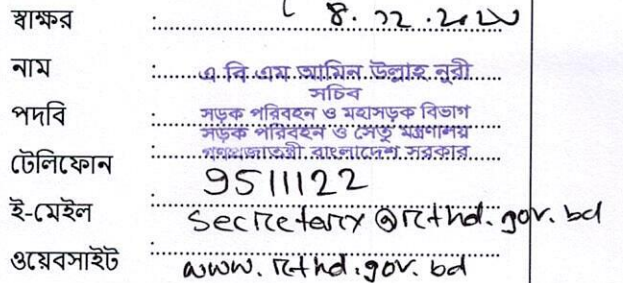 স্বাক্ষর :
নাম : এ বি এম আমিন উল্লাহ নুরী
সচিব
পদবি : সড়ক পরিবহন ও মহাসড়ক বিভাগ
সড়ক পরিবহন ও সেতু মন্ত্রণালয়
গণপ্রজাতন্ত্রী বাংলাদেশ সরকার
টেলিফোন : 9511122
ই-মেইল : secretary@rthd.gov.bd
ওয়েবসাইট : www.rthd.gov.bd